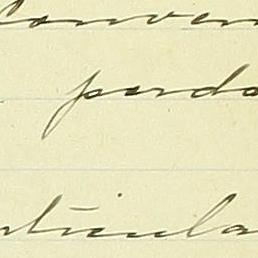 Conven
pardo
rticula